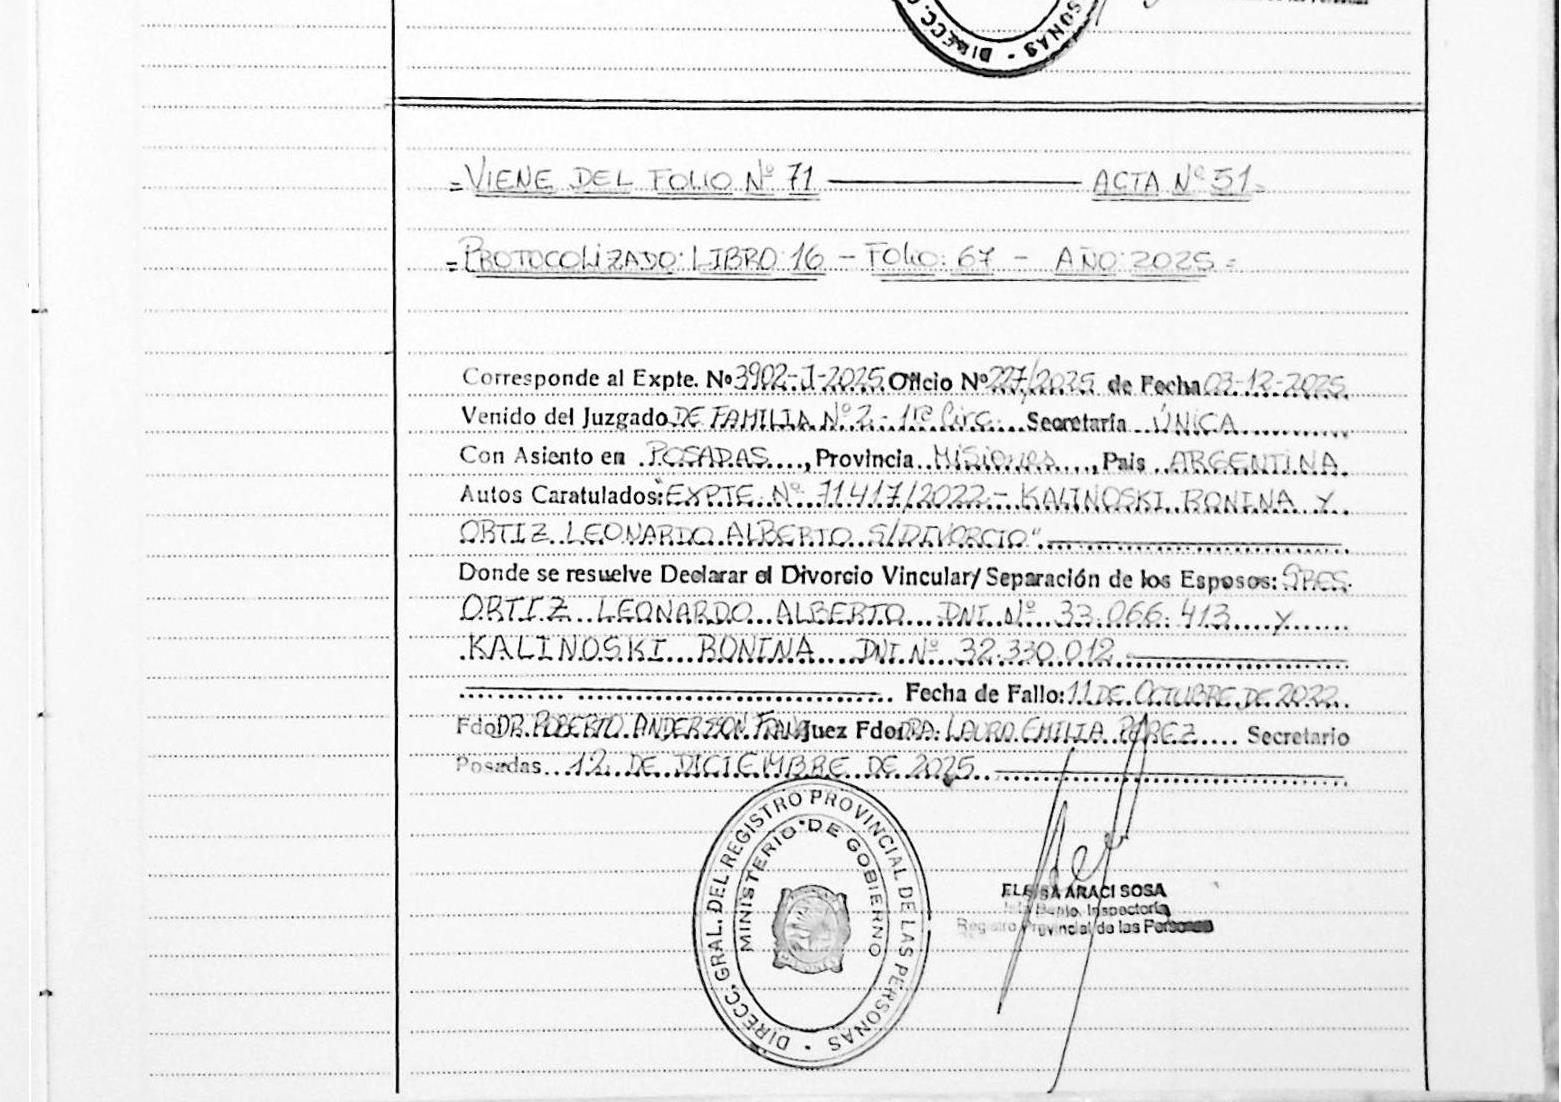 SONAS - DIRECC.
=VIENE DEL FOLIO Nº 71 ACTA Nº 51=
=PROTOCOLIZADO: LIBRO: 16 - FOLIO: 67 - AÑO: 2025 =
Corresponde al Expte. Nº 3902-J-2025 Oficio Nº 227/2025 de Fecha 03-12-2025.
Venido del Juzgado DE FAMILIA Nº 2 - 1ra Circ. Secretaría ÚNICA
Con Asiento en POSADAS, Provincia MISIONES, Pais ARGENTINA.
Autos Caratulados: EXPTE. Nº 71.417/2022 - KALINOSKI RONINA Y
ORTIZ LEONARDO ALBERTO S/DIVORCIO"
Donde se resuelve Declarar el Divorcio Vincular/ Separación de los Esposos: SRES.
ORTIZ LEONARDO ALBERTO DNI Nº 33.066.413 y
KALINOSKI RONINA DNI Nº 32.330.012
Fecha de Fallo: 11 DE OCTUBRE DE 2022.
Fdo DR. ROBERTO ANDERZON Juez Fdo: DRA. LAURA EMILIA PEREZ Secretario
Posadas 12 DE DICIEMBRE DE 2025
DIRECC. GRAL. DEL REGISTRO PROVINCIAL DE LAS PERSONAS
MINISTERIO DE GOBIERNO
SA ARACI SOSA
Inspectoría
Registro Provincial de las Personas